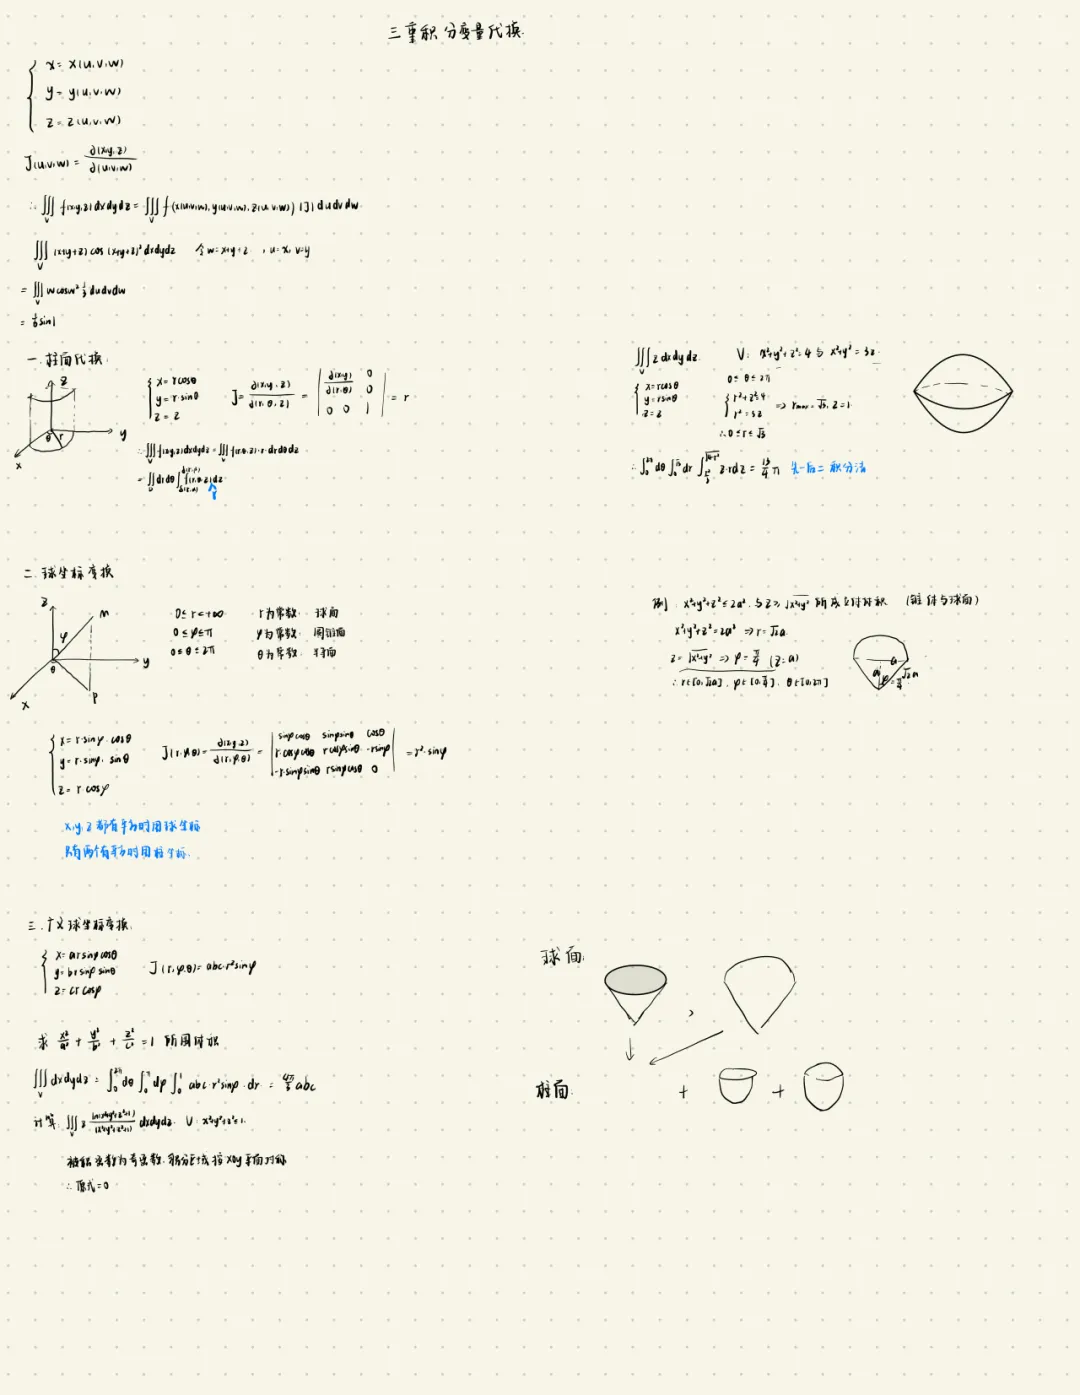 三重积分变量代换.
x = x(u,v,w)
y = y(u,v,w)
z = z(u,v,w)
J(u,v,w) = ∂(x,y,z)/∂(u,v,w)
∴ ∭_V f(x,y,z) dxdydz = ∭_V f(x(u,v,w), y(u,v,w), z(u,v,w)) |J| dudvdw
∭_V (x+y+z) cos (x+y+z)² dxdydz 令 w = x+y+z , u = x, v = y
= ∭_V w cosw² dudvdw
= 1/6 sin1
一. 柱面代换.
z
θ r y
x
x = rcosθ
y = r·sinθ
z = z
J = ∂(x,y,z)/∂(r,θ,z) = | ∂(x,y)/∂(r,θ) 0 0 ; 0 0 1 | = r
∴ ∭_V f(x,y,z)dxdydz = ∭_V f(r,θ,z)·r·drdθdz
= ∬ drdθ ∫ f(r,θ,z)dz
r
∭_V z dxdydz. V: x²+y²+z²=4 与 x²+y²=3z.
x = rcosθ
y = rsinθ
z = z
0 ≤ θ ≤ 2π
r²+z²=4
r²=3z
⇒ r_max = √3, z = 1.
∴ 0 ≤ r ≤ √3
∴ ∫₀^2π dθ ∫₀^√3 dr ∫_{r²/3}^{√(4-r²)} z·rdz = 13/4 π 先一后二积分法
二. 球坐标变换
z M
φ
θ y
x P
0 ≤ r < +∞ r为常数. 球面
0 ≤ φ ≤ π φ为常数. 圆锥面
0 ≤ θ ≤ 2π θ为常数. 半平面
x = r·sinφ·cosθ
y = r·sinφ·sinθ
z = r cosφ
J(r,φ,θ) = ∂(x,y,z)/∂(r,φ,θ) = | sinφcosθ sinφsinθ cosθ ; r·cosφcosθ rcosφsinθ -rsinφ ; -r·sinφsinθ rsinφcosθ 0 | = r²·sinφ
x,y,z 都有平方时用球坐标
只有两个有平方时用柱坐标.
例. x²+y²+z² ≤ 2a² 与 z ≥ √(x²+y²) 所成立体体积 (锥体与球面)
x²+y²+z² = 2a² ⇒ r = √2a
z = √(x²+y²) ⇒ φ = π/4 (z = a)
∴ r∈[0,√2a]. φ∈[0,π/4]. θ∈[0,2π]
a
a φ = π/4 √2a
三. 广义球坐标变换.
x = arsinφcosθ
y = brsinφsinθ
z = crcosφ
J(r,φ,θ) = abc·r²sinφ
求 x²/a² + y²/b² + z²/c² = 1 所围体积
∭_V dxdydz = ∫₀^2π dθ ∫₀^π dφ ∫₀^1 abc·r²sinφ·dr = 4π/3 abc
计算. ∭_V z ln(x²+y²+z²+1)/(x²+y²+z²+1) dxdydz. V: x²+y²+z²=1.
被积函数为奇函数. 积分区域按xoy平面对称
∴ 原式 = 0
球面:
,
柱面: + +